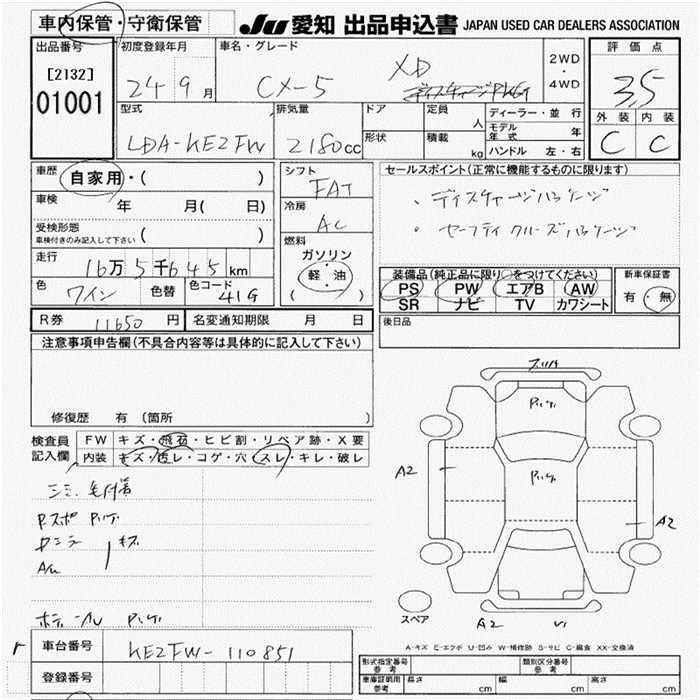 車内保管・守衛保管
JU 愛知 出品申込書 JAPAN USED CAR DEALERS ASSOCIATION
出品番号 初度登録年月 車名・グレード 2WD・4WD 評価点
[2132] 01001 24 9月 CX-5 XD 3.5
型式 排気量 ドア 定員 人 ディーラー・並行 外装 内装
モデル年式 年
LDA-KE2FW 2180cc 形状 積載 kg ハンドル 左・右 C C
車歴 自家用・( ) シフト FAT セールスポイント(正常に機能するものに限ります)
車検 年 月( 日) 冷房 AC ・ディスチャージパッケージ
受検形態 車検付きのみ記入して下さい ( ) 燃料 ・セーフティクルーズパッケージ
走行 16万5千645km ガソリン・軽・油 ( )
装備品(純正品に限り○をつけてください) 新車保証書
色 ワイン 色替 色コード 41G PS PW エアB AW 有・無
SR ナビ TV カワシート
R券 11650円 名変通知期限 月 日 後日品
注意事項申告欄(不具合内容等は具体的に記入して下さい)
修復歴 有 (箇所 )
検査員記入欄 FW キズ・飛石・ヒビ割・リペア跡・X要
内装 キズ・汚レ・コゲ・穴・スレ・キレ・破レ
A2
A2
A2 V1
スペア
A-キズ E-エクボ U-凹み W-補修跡 S-サビ C-腐食 XX-交換済
車台番号 KE2FW-110851
登録番号
形式指定番号 参考 類別区分番号 参考
車庫証明用 参考 長さ cm 幅 cm 高さ cm